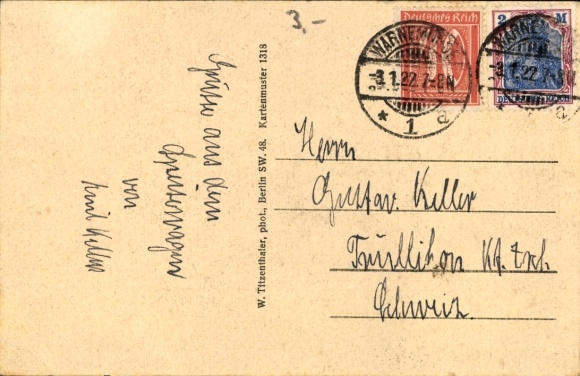 3,-
Deutsches Reich
2 M
WARNEMÜNDE
-3.1.22.7-8N
* 1 a
WARNEM
-3.1.22.7-8N
a
Grüße aus dem
Speisewagen
von
Emil Keller
W. Titzenthaler, phot., Berlin SW. 48. Kartenmuster 1318
Herrn
Gustav Keller
Trüllikon Kt. Zch
Schweiz.